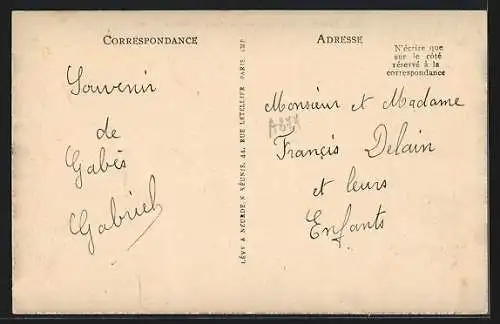 CORRESPONDANCE
Souvenir
de
Gabès
Gabriel
LÉVY & NEURDEIN RÉUNIS, 44, RUE LETELLIER PARIS IMP
ADRESSE
N'écrire que
sur le côté
réservé à la
correspondance
Monsieur et Madame
Francis Delain
et leurs
Enfants